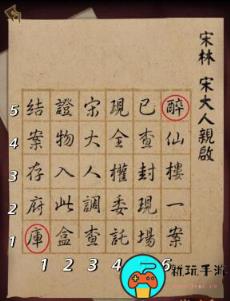 宋林 宋大人親啟
醉仙樓一案
已查封現場
現全權委託
宋大人調查
證物入此盒
結案存府庫
5
4
3
2
1
1 2 3 4 5 6
新玩手游